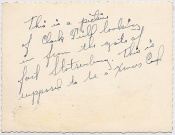 This is a picture
of Clark Hall looking
in from the gate of
fort Slotsenburg. This is
supposed to be a Xmas Card